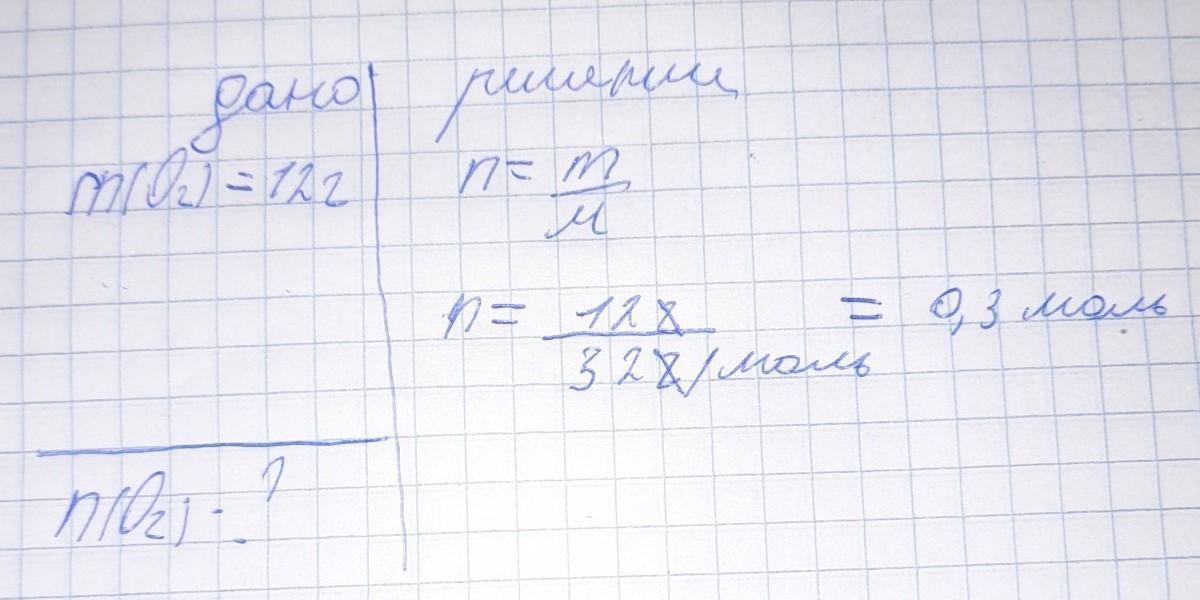 дано
m(O₂) = 12г
n(O₂) - ?
решении
n = m/M
n = 12г / 32г/моль = 0,3 моль